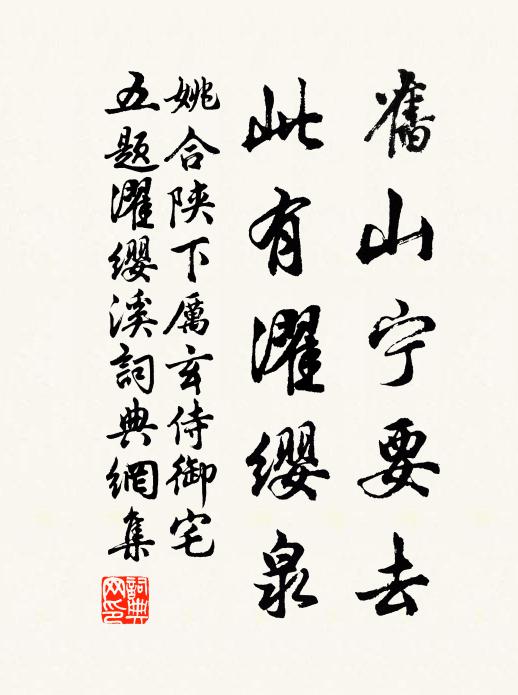 舊山宁要去
此有濯缨泉
姚合陕下厲玄侍御宅
五题濯缨溪詞典網集
詞典网印